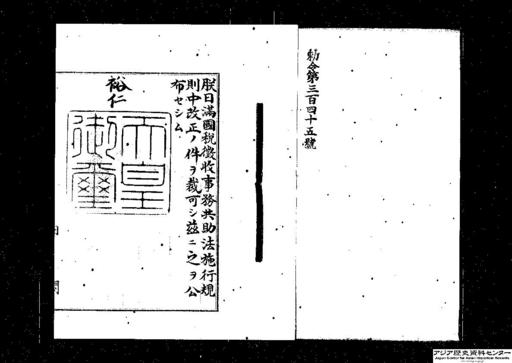 勅令第三百四十五號
朕日滿國税徴收事務共助法施行規
則中改正ノ件ヲ裁可シ茲ニ之ヲ公
布セシム
裕仁
天皇
御璽
アジア歴史資料センター
Japan Center for Asian Historical Records